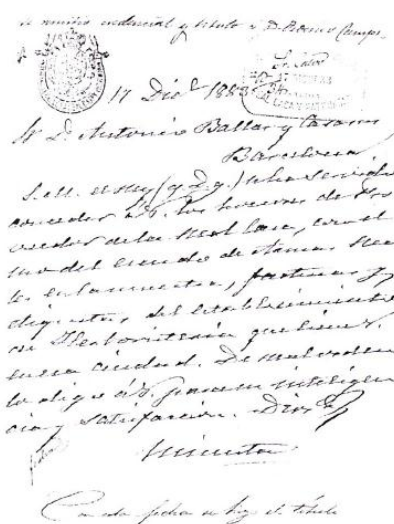 se remitió credencial y título a D. Ramon Camps.
17 Dicᵉ 1883
Sr. D. Antonio Ballar y Casany
Barcelona
S. M. el Rey (q. D. g.) se ha servido
conceder a V. los honores de Pro
veedor de la Real Casa, con el
uso del escudo de Armas Rea
les en la muestra, facturas y
etiquetas del establecimiento
de que tiene
en esa ciudad. De Real orden
lo digo á V. para su inteligen
cia y satisfacción. Dios &
Minuta
Con esta fecha se hizo el título